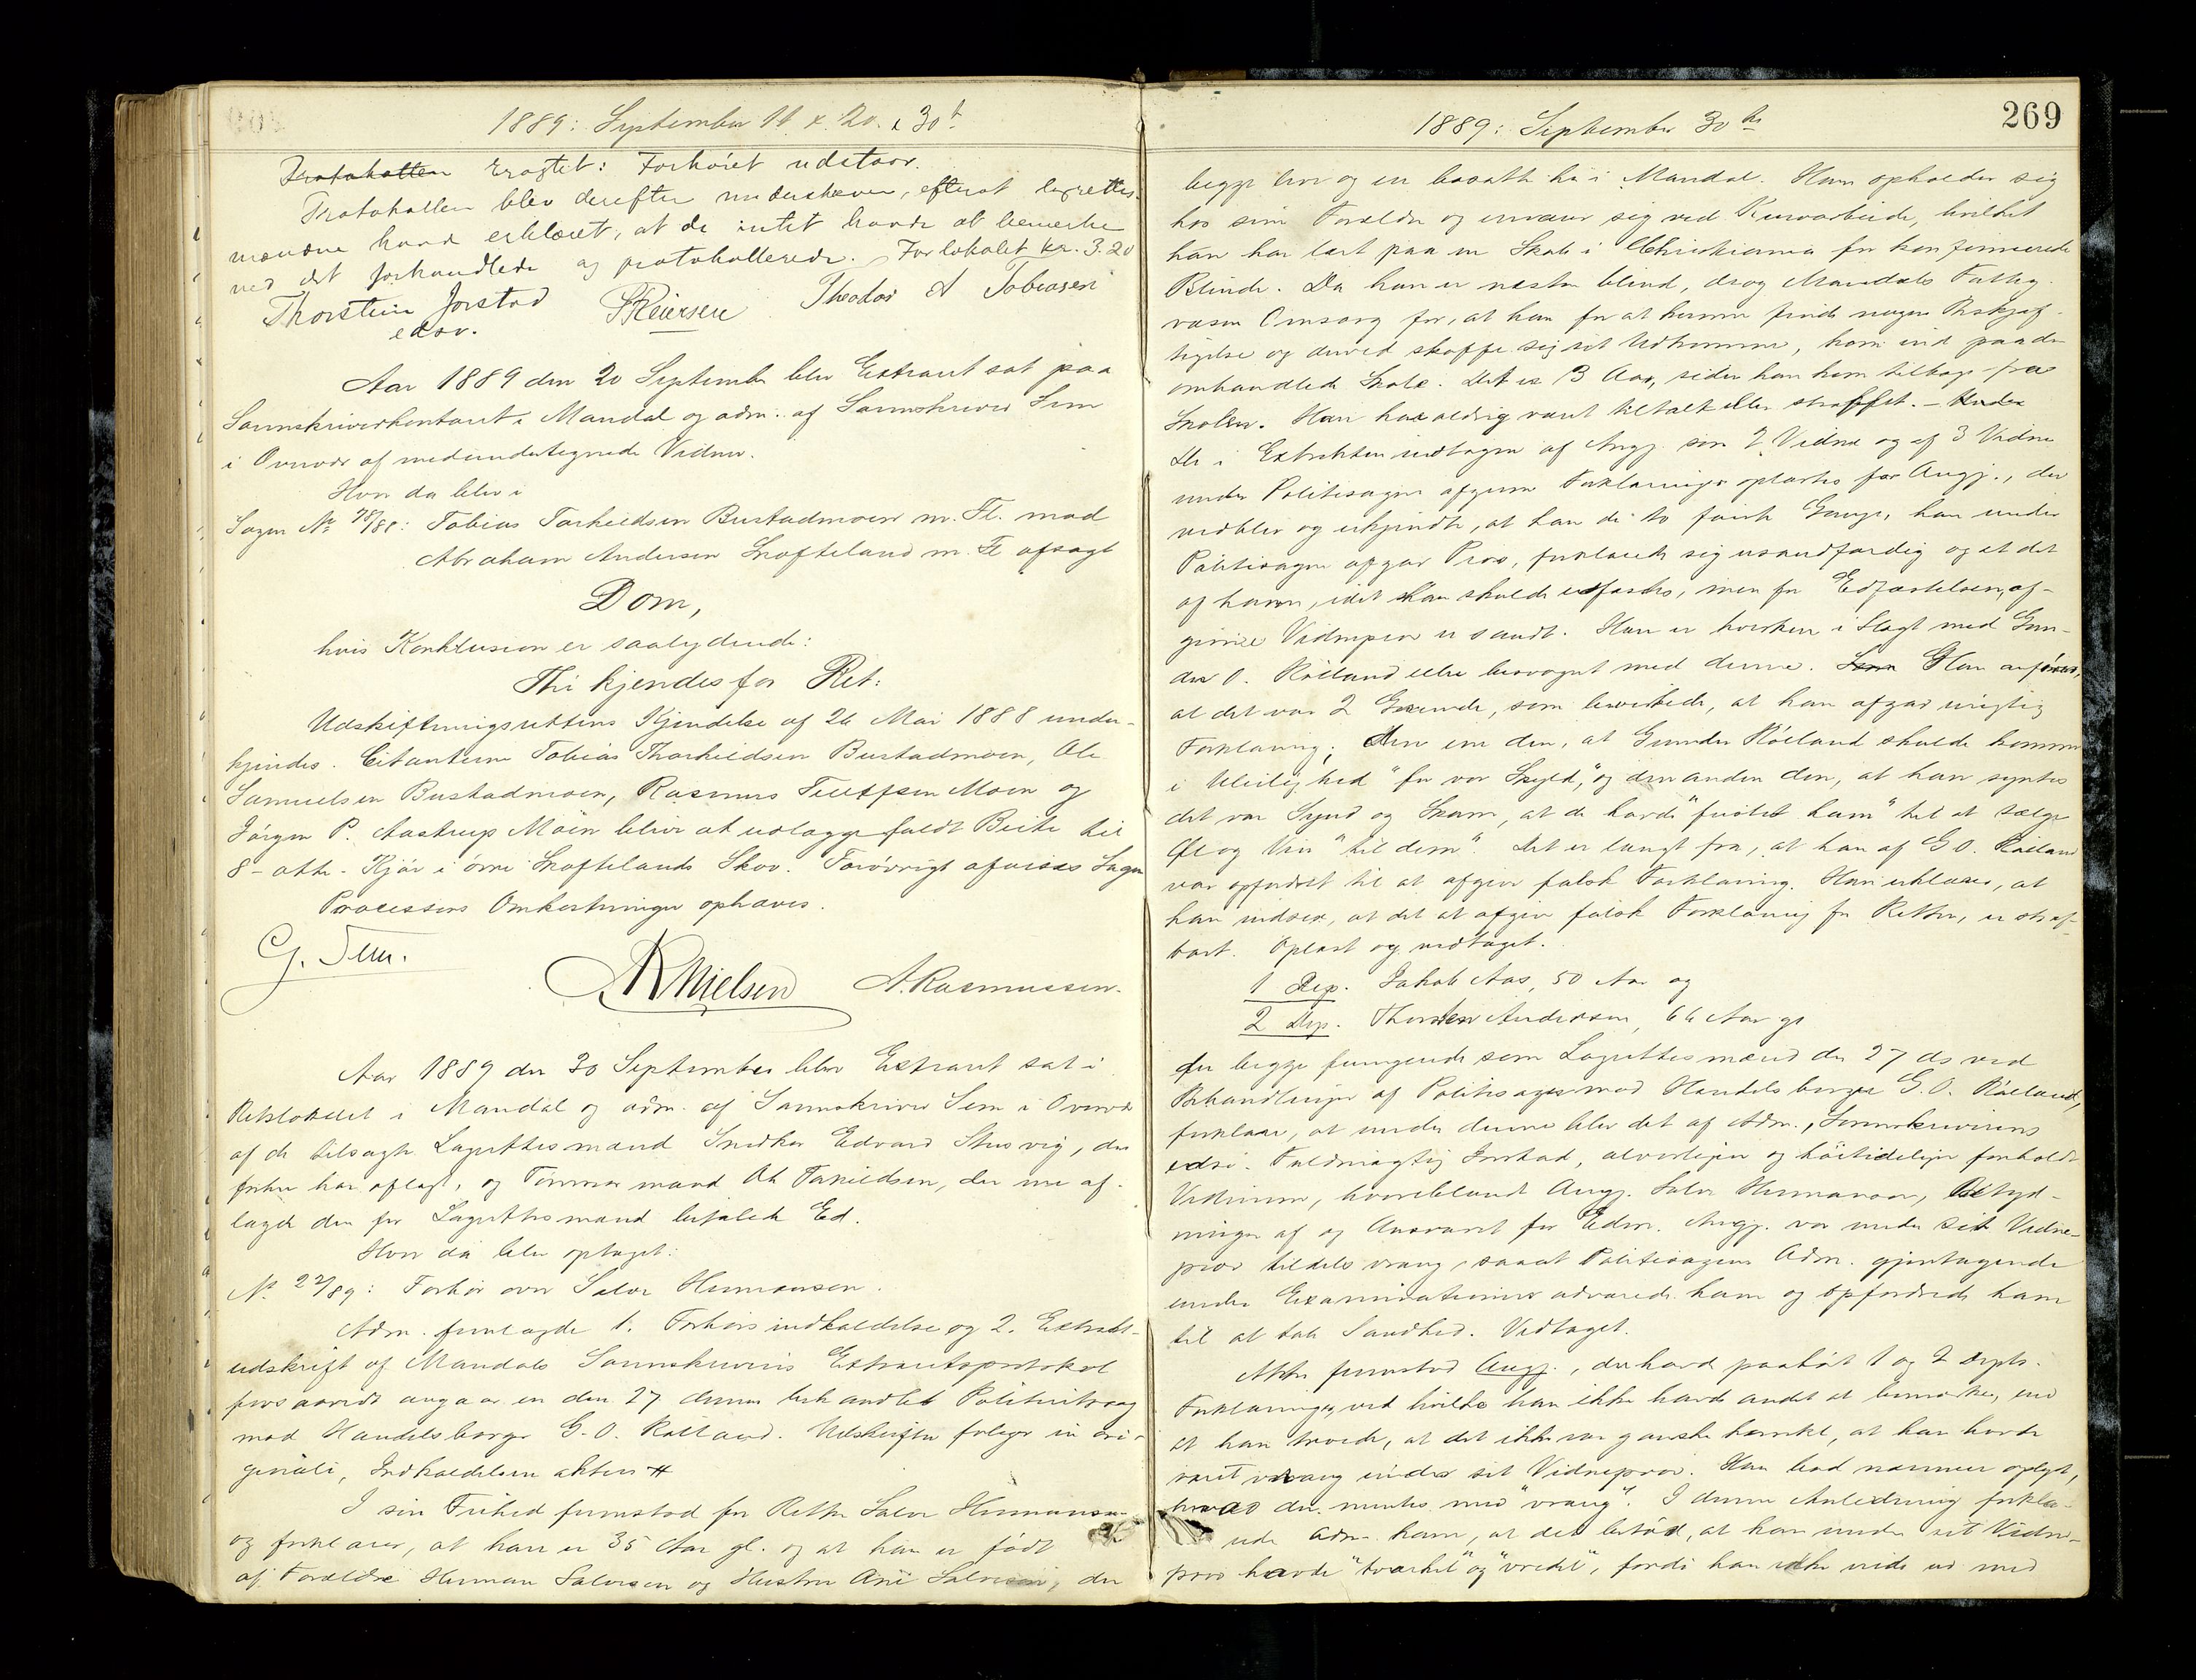 1889: September 11. & 20. & 30t
Protokollen Eragtet: Forhöret udstaar.
Protokollen blev derefter underskreven, efterat lagrettes-
mændene havde erklæret, at de intet havde at bemærke
ved det forhandlede og protokollerede. Forlokalet kr. 3.20
Thorstein Jorstad PReiersen Theodor A Tobiasen
edsv.
Aar 1889 den 20 September blev Extraret sat paa
Sorenskriverkontoret i Mandal og adm. af Sorenskriver Sem
i Overvær af medundertegnede Vidner.
Hvor da blev i
Sagen No 78/88: Tobias Torkeldsen Bustadmoen m. Fl. mod
Abraham Andersen Skofteland m. Fl afsagt
Dom,
hvis Konklusion er saalydende:
Thi kjendes for Ret:
Udskiftningsrettens Kjendelse af 26 Mai 1888 under-
kjendes. Citanterne Tobias Thorkeldsen Bustadmoen, Ole
Samuelsen Bustadmoen, Rasmus Moen og
Jörgen P. Aastrup Moen bliver at udlægge fuldt Beite til
8 - otte - Kjör i övre Skoftelands Skov. Forövrigt afvises Sagen
Processens Omkostninger ophæves.
G. Sem. Nielsen A. Rasmussen.
Aar 1889 den 30 September blev Extraret sat i
Retslokalet i Mandal og adm. af Sorenskriver Sem i Overvær
af de tilsagte Lagrettesmænd Snedker Edvard Stusvig, der
forhen har aflagt, og Tömmermand Ole Tarieldsen, der nu af-
lagde den for Lagrettesmænd befalede Ed.
Hvor da blev optaget:
No 22/89: Forhör over Salve Hermansen.
Adm. fremlagde 1. Forhörsindkaldelse og 2. Extrakt-
udskrift af Mandals Sorenskriveris Extraretsprotokol
forsaavidt angaar en den 27 dennes behandlet Politiretssag
mod Handelsborger G. O. Röiland. Udskriften fölger in ori-
ginali, Indkaldelsen aktes #
I sin Frihed fremstod for Retten Salve Hermansen
og forklarer, at han er 35 Aar gl. og at han er födt
af Forældre Herman Salvesen og Hustru Ane Salvesen, der
1889: September 30te
269
begge lever og er bosatte her i Mandal. Han opholder sig
hos sine Forældre og ernærer sig ved Kurvarbeide, hvilket
han har lært paa en Skole i Christiania for konfirmerede
Blinde. Da han er næsten blind, drog Mandals Fattig-
væsen Omsorg for, at han for at kunne finde nogen Beskjæf-
tigelse og derved skaffe sig et Udkomme, kom ind paa den
omhandlede Skole. Det er 13 Aar, siden han kom tilbage fra
Skolen. Han har aldrig været tiltalt eller straffet. - Under
De i Extrakten indtagne af Angj. som 2 Vidne og af 3 Vidne
under Politisagen afgivne Forklaringer oplæstes for Angj., der
vedblev og erkjendte, at han de to förste Gange, han under
Politisagen afgav Prov, forklarede sig usandfærdig og at det
af ham, idet han skulde edfæstes, men för Edfæstelsen, af-
givne Vidneprov er sandt. Han er hverken i Slægt med Gun-
der O. Röiland eller besvogret med denne. Han anförer,
at det var 2 Grunde, som bevirkede, at han afgav urigtig
Forklaring; den ene den, at Gunder Röiland skulde komme
i Uleilighed "for vor Skyld," og den anden den, at han syntes
det var Synd og Skam, at de havde "fristet ham" til at sælge
Öl og Vin "til dem". Det er langt fra, at han af G O. Röiland
var opfordret til at afgive falsk Forklaring. Han erklærer, at
han indser, at det at afgive falsk Forklaring for Retten, er straf-
bart. Oplæst og vedtaget.
1 Dep. Jakob Aas, 50 Aar og
2 Dep. Andersen, 66 Aar gl
der begge fungerede som Lagrettesmænd den 27 ds ved
Behandlingen af Politisagen mod Handelsborger G. O. Röiland,
forklarer, at under denne blev det af Adm., Sorenskriverens
edsv. Fuldmægtig Jorstad, alvorligen og höitideligen foreholdt
Vidnerne, hvoriblandt Angj. Salve Hermansen, Betyd-
ningen af og Ansvaret for Eden. Angj. var under sit Vidne-
prov tildels vrang, saaat Politisagens Adm. gjentagende
under Examinationen advarede ham og opfordrede ham
til at tale Sandhed. Vedtaget.
Atter fremstod Angj., der havde paahört 1 og 2 Depts.
Forklaringer, ved hvilke han ikke havde andet at bemærke, end
at han troede, at det ikke var ganske korrekt, at han havde
været vrang under sit Vidneprov. Han bad nærmere oplyst,
hvad der mentes med "vrang". I denne Anledning forkla-
rede Adm. ham, at det betöd, at han under sit Vidne-
prov havde "tværket" og "vredet", fordi han ikke vilde ud med